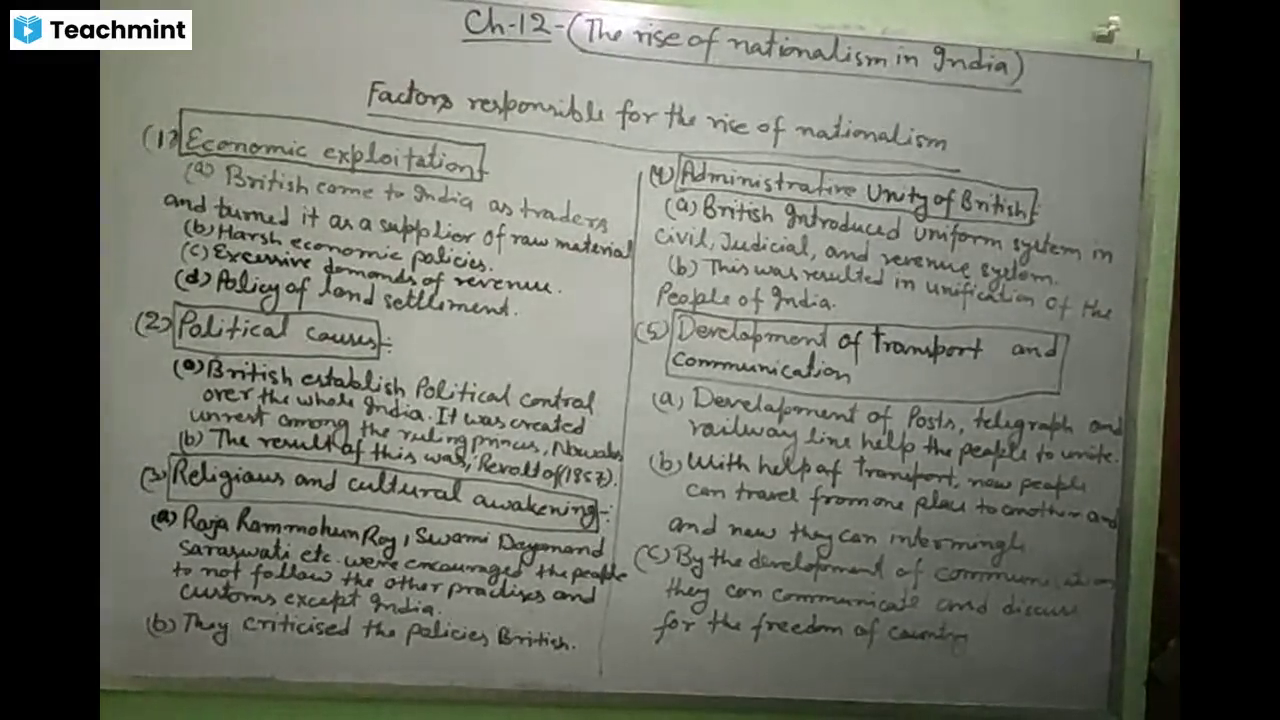 Teachmint
Ch-12-(The rise of nationalism in India)
Factors responsible for the rise of nationalism
(1) Economic exploitation
(a) British come to India as traders
and turned it as a supplier of raw material
(b) Harsh economic policies.
(c) Excessive demands of revenue.
(d) Policy of land settlement.
(2) Political causes:-
(a) British establish Political control
over the whole India. It was created
unrest among the ruling princes, Nawabs
(b) The result of this was, Revolt of (1857).
(3) Religious and cultural awakening:-
(a) Raja Rammohun Roy, Swami Dayanand
Saraswati etc. were encouraged the people
to not follow the other practises and
customs except India.
(b) They criticised the policies British.
(4) Administrative Unity of British:-
(a) British Introduced uniform system in
civil, Judicial, and revenue system.
(b) This was resulted in unification of the
People of India.
(5) Development of Transport and
Communication
(a) Development of Posts, telegraph and
railway line help the people to unite.
(b) With help of Transport, now people
can travel from one place to another and
and now they can intermingle
(c) By the development of communication
they can communicate and discuss
for the freedom of country